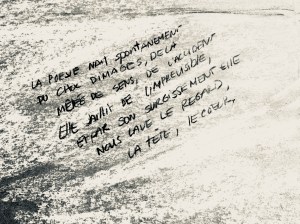 LA POESIE NAIT SPONTANEMENT
DU CHOC D'IMAGES, DE LA
MERE DE SENS, DE L'ACCIDENT
Elle JAILLIT DE L'IMPREVISIBLE,
ET PAR SON SURGISSEMENT Elle
NOUS LAVE LE REGARD,
LA TETE, LE COEUR,